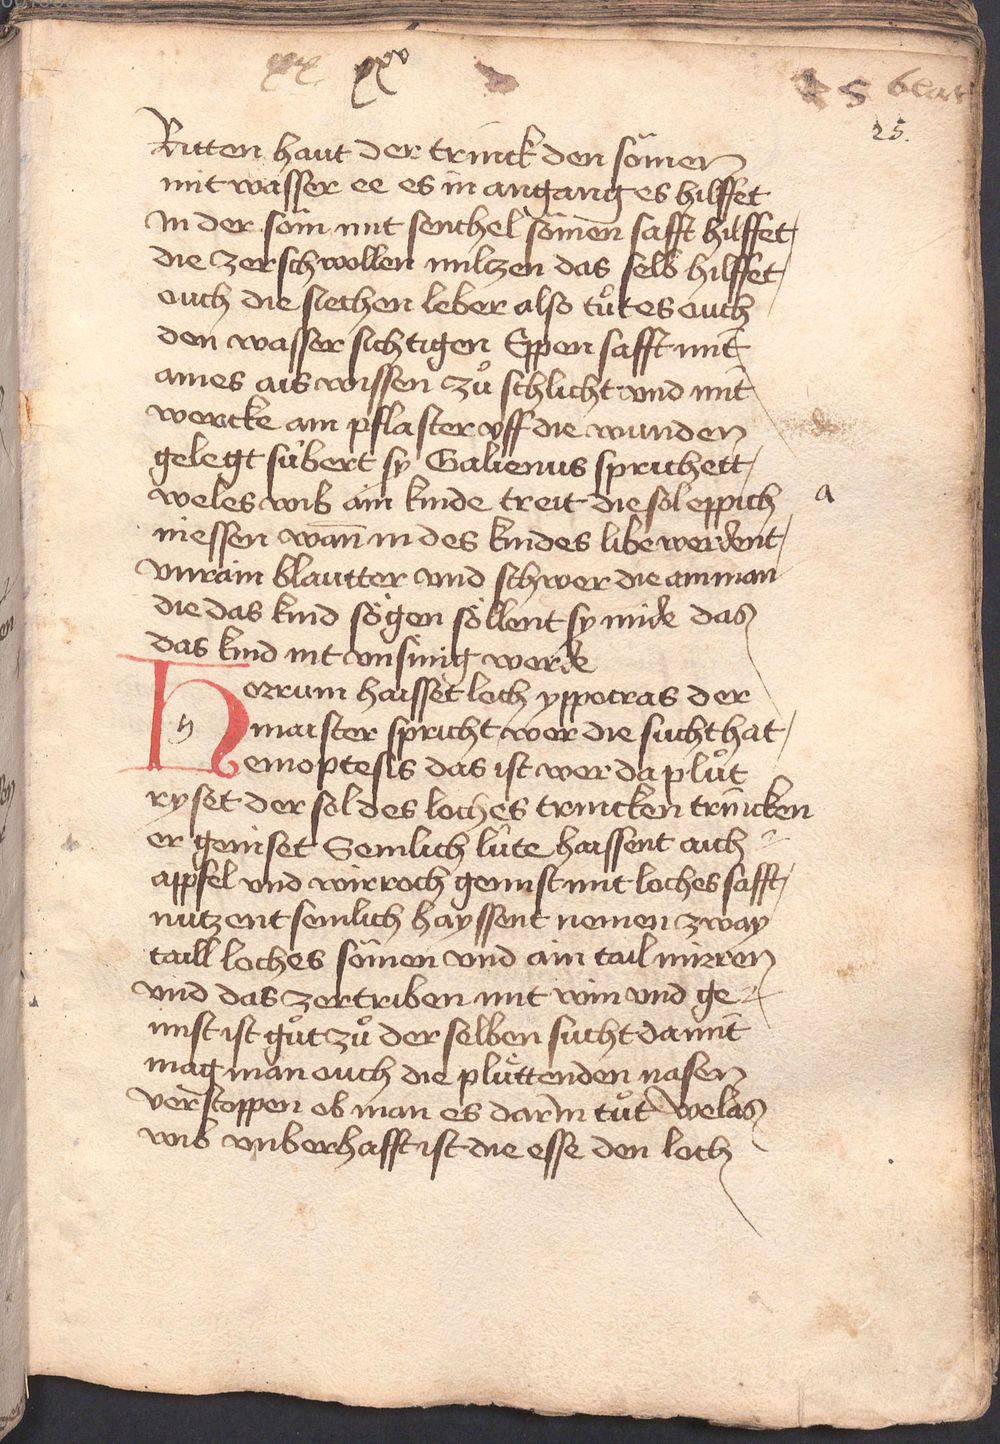 xxv
25.
Ritten haut der trinck den sömen
mit wasser ee es in an gang es hilffet
In der söm mit fenchel sömen safft hilffet
die zerschwollen miltzen das selb hilffet
ouch die siechen leber also tůt es ouch
den wasser sichtigen Eppen safft mit
aines ais wissen zů schlicht vnd mit
wercke ain pflaster vff die wunden
gelegt sübert sy Galienus sprichett
weles wib ain kinde treit die sol eppich
a
niessen wan̄ in des kindes libe werdent
vnrain blautter vnd schwer die amman
die das kind sögen söllent sy mide das
das kind nit vnsinig werde
Horrum haisset loch yppocras der
maister spricht wer die sucht hat
emoptesis das ist wer da plůt
ryset der sol des loches trincken trincken
er geniset Semlich lüte haissent aich
appfel vnd wirroch gemist mit loches safft
nutzent semlich hayssent nemen zway
taill loches sömen vnd ain tail mirren
vnd das zertriben mit win vnd ge
mist ist gůt zů der selben sucht damit
mag man ouch die plůttenden nasen
verstoppen ob man es darin tůt Welas
wib vnberhafft ist die esse den loch